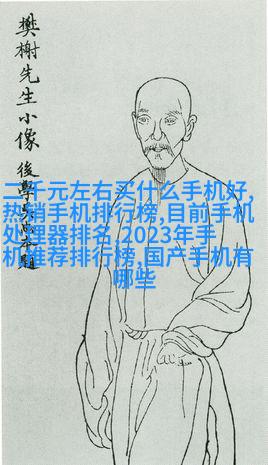 樊榭先生小像
後學
題
二千元左右买什么手机好,
热销手机排行榜,目前手机
处理器排名,2023年手
机推荐排行榜,国产手机有
哪些